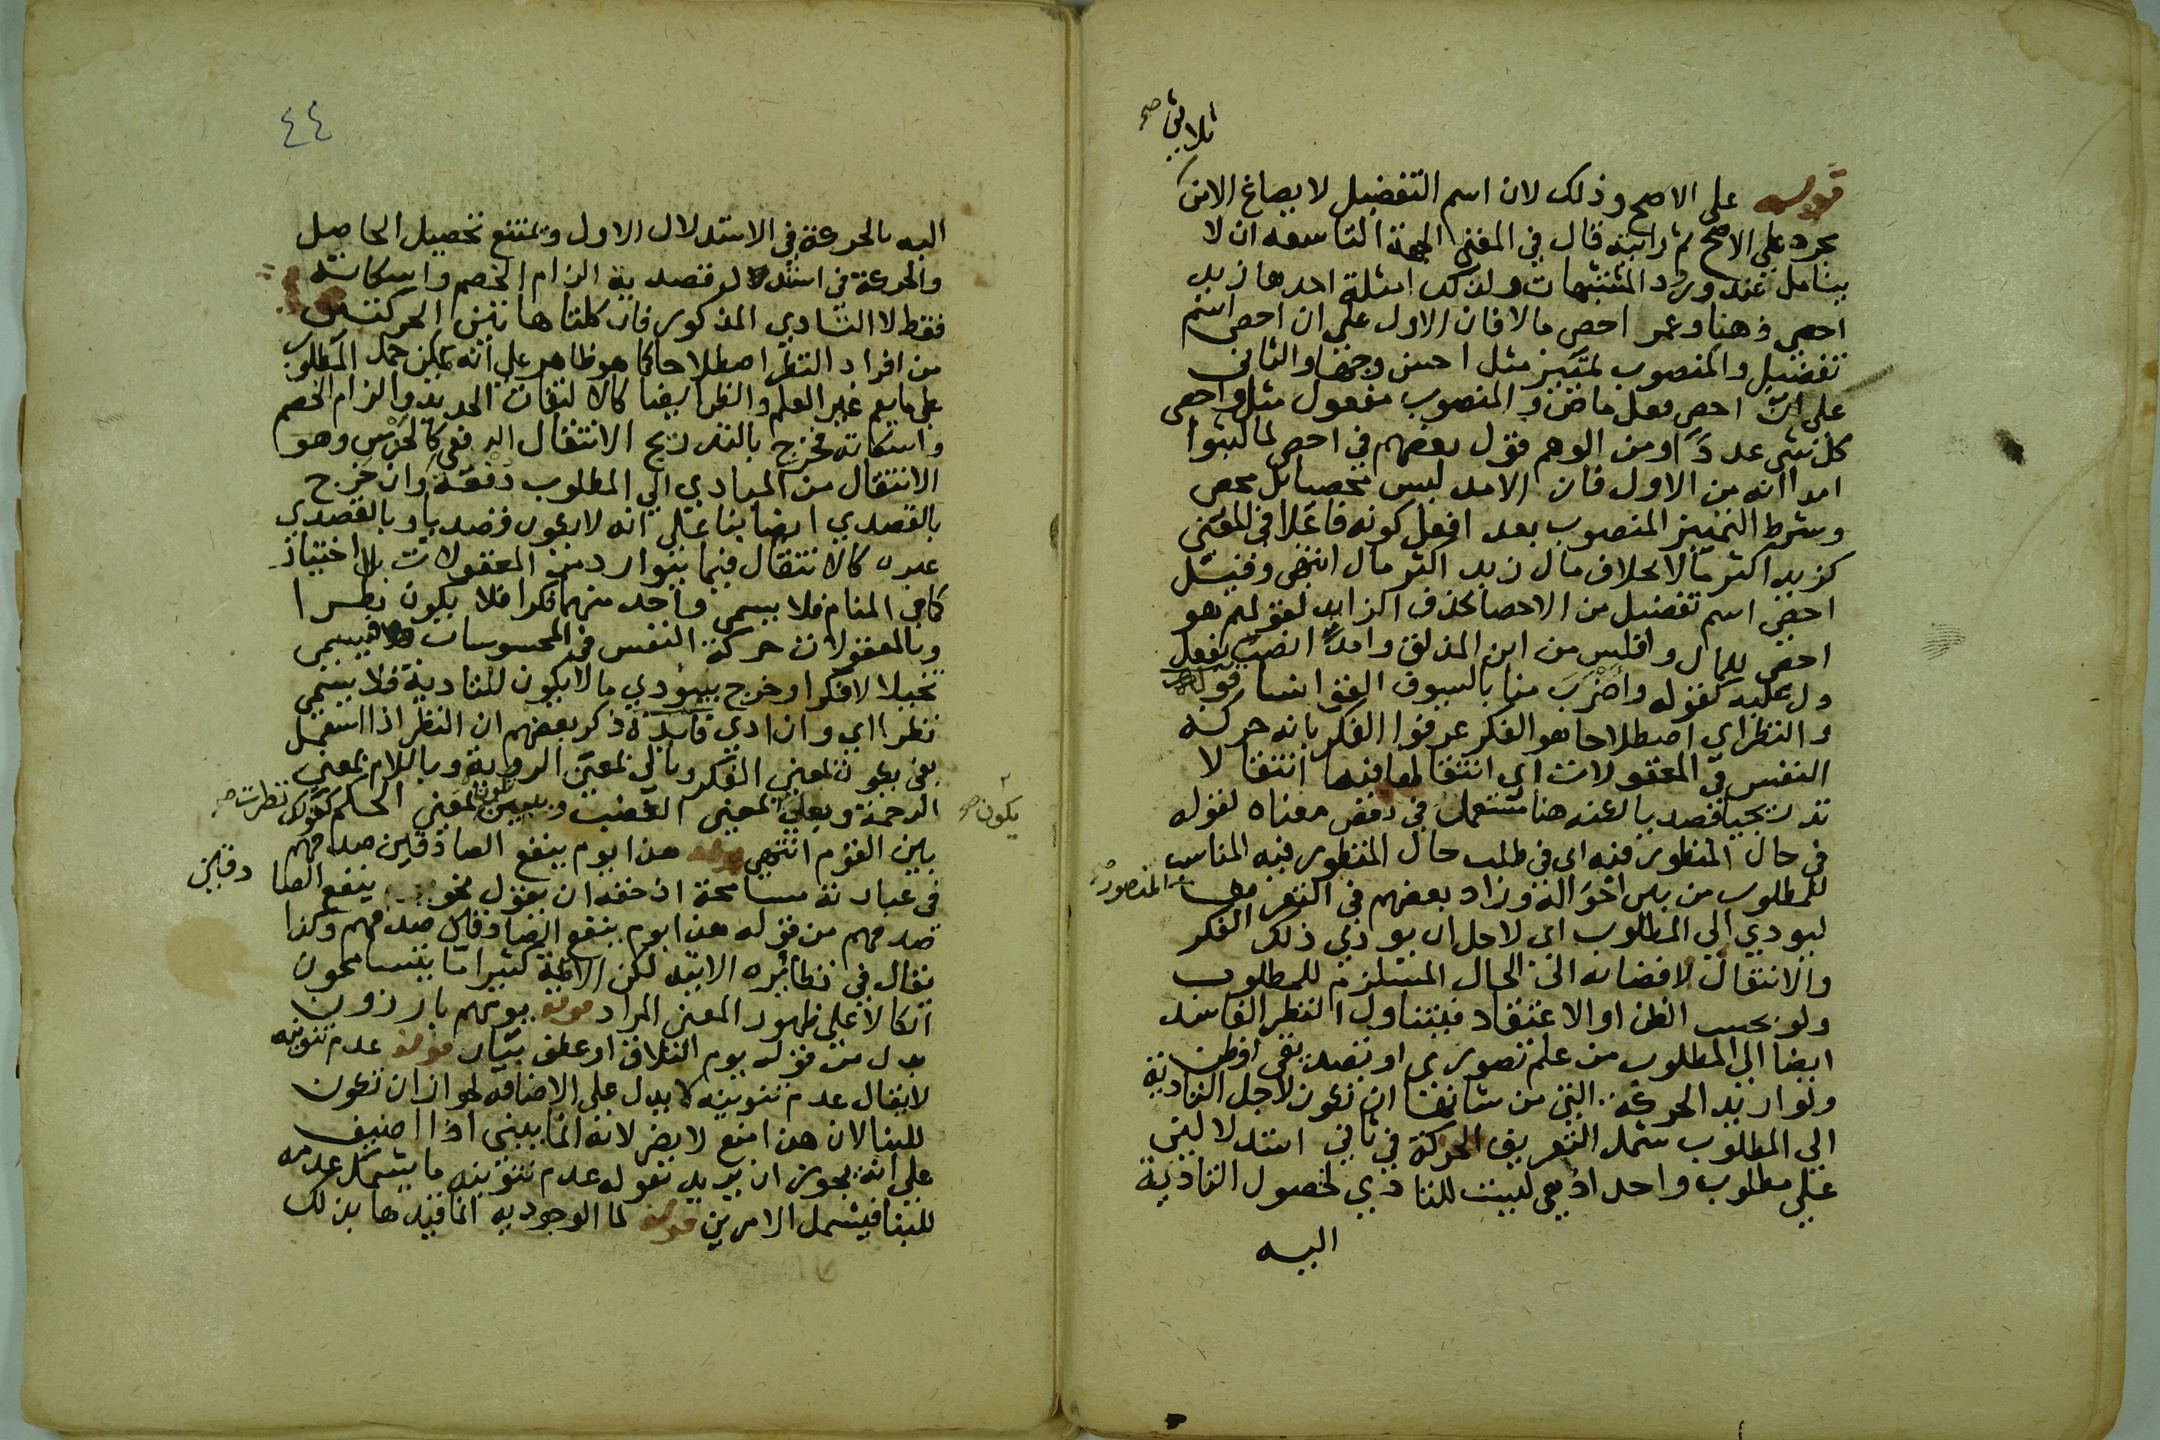 ثلاثي صح
قوله على الاصح وذلك لان اسم التفضيل لا يصاغ الا من
مجرد على الاصح ثم رايته قال في المغني الجهة التاسعه ان لا
يتامل عند ورود المشتبهات ولذلك امثلة احدها زيد
احصى ذهنا وعمر احصى مالا فان الاول على ان احصى اسم
تفضيل والمنصوب تمييز مثل احسن وجها والثاني
على ان احصى فعل ماض والمنصوب مفعول مثل واحصى
كل شي عددا ومن الوهم قول بعضهم في احصى لما لبثوا
امدا انه من الاول فان الامد ليس محصيا بل محصى
وشرط التمييز المنصوب بعد افعل كونه فاعلا في المعنى
كزيد اكثر مالا بخلاف مال زيد اكثر مال انتهى وقيل
احصى اسم تفضيل من الاحصا بحذف الزايد لقولهم هو
احصى للمال وافلس من ابن المذلق وامدا نصب بفعل
دل عليه كقوله واضرب منا بالسيوف القوانسا قوله
والنظر اي اصطلاحا هو الفكر عرفوا الفكر بانه حركة
النفس في المعقولات اي انتقالها فيها انتقالا
تدريجيا قصديا لعنه هنا مستعملا في بعض معناه لقوله
في حال المنظور فيه اي في طلب حال المنظور فيه المناسب
للمطلوب من بين احواله وزاد بعضهم في التعريف
المنصور
ليودي الي المطلوب اي لاجل ان يودي ذلك الفكر
والانتقال لافضائه الى الحال المستلزم للمطلوب
ولو بحسب الظن او الاعتقاد فيتناول النظر الفاسد
ايضا الى المطلوب من علم تصوري او تصديقي او ظن
ولو اريد الحركة التي من شانها ان تكون لاجل التادية
الي المطلوب شمل التعريف الحركة في ثاني استدلالين
على مطلوب واحد اذ هي ليست للتادي لحصول التادية
اليه
٤٤
اليه بالحركة في الاستدلال الاول ويمتنع تحصيل الحاصل
والحركة في استدلال قصد به الزام الخصم واسكاته
فقط لا التادي المذكور فان كلتا هاتين الحركتين
من افراد النظر اصطلاحا كما هو ظاهر على انه يمكن حمل المطلوب
على ما يعم غير العلم والظن ايضا كالالتفات الجديد والزام الخصم
واسكاته فخرج بالتدريج الانتقال الدفعي كالحدس وهو
الانتقال من المبادي الي المطلوب دفعة وان خرج
بالقصدي ايضا بنا على انه لا يكون قصديا وبالقصدي
غيره كالانتقال فيما يتوارد من المعقولات بلا اختيار
كما في المنام فلا يسمى واحد منهما فكرا فلا يكون نظرا
وبالمعقولات حركة النفس في المحسوسات فيسمى
تخيلا لا فكرا وخرج بيؤدي ما لا يكون للتادية فلا يسمى
نظرا اي وان ادى فائدة ذكر بعضهم ان النظر اذا استعمل
بفي يكون لمعنى الفكر وبالى لمعنى الروية وباللام لمعنى
يكون صح
الرحمة وبعلى لمعنى الغضب وببين لمعنى الحكم كقولك نظرت صح
بين القوم انتهى قوله هذا يوم ينفع الصادقين صدقهم
في عبارته مسامحة اذ حقه ان يقول نحو ينفع الصا دقين
صدقهم من قوله هذا يوم ينفع الصادقين صدقهم وكذا
يقال في نظائره الاتيه لكن الائمة كثيرا ما يتسامحون
اتكالا على ظهور المعنى المراد قوله يوم هم بارزون
بدل من قوله يوم التلاق او عطف بيان قوله عدم تنوينه
لا يقال عدم تنوينه لا يدل على الاضافه لجواز ان تكون
للبنا لان هذا منع لا يضر لانه انما يبنى اذا اضيف
على انه يجوز ان يريد بقوله عدم تنوينه ما يشمل عدمه
للبنا فيشمل الامرين قوله لما الوجوديه انما قيدها بذلك